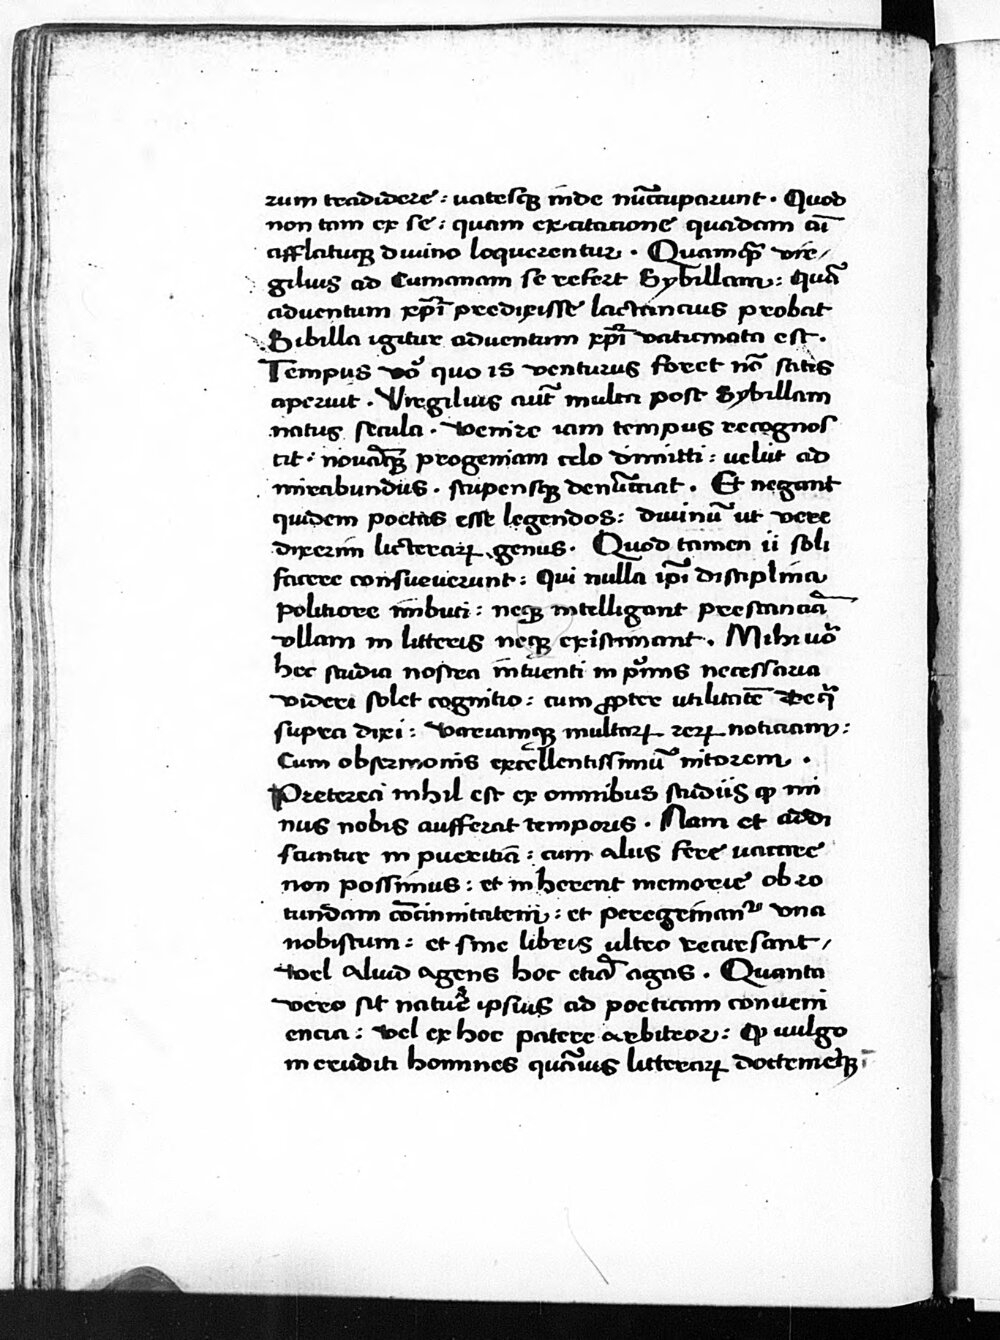 rum tradidere : uatesqꝫ inde nūccuparunt . Quod
non tam ex se : quam excitacione quadam aī
afflatuqꝫ diuino loquerentur . Quamqꝫ vir/
gilius ad Cumanam se refert Sybillam : quā
aduentum xp̄i predixisse lactancius probat
Sibilla igitur aduentum xp̄i vaticinata est .
Tempus vo᷒ quo is venturus foret nō satis
aperuit . Virgilius aut̄ multa post Sybillam
natus secula . venire iam tempus recognos
cit : nouāqꝫ progeniam celo dimitti : velut ad
mirabundus . stupensqꝫ denūcciat . Et negant
quidem poetas esse legendos : diuinū ut vere
dixerim licterarꝝ genus . Quod tamen ii soli
facere consueuerunt : qui nulla ip̄i disciplina
politiore imbuti : neqꝫ intelligant prestanciā
vllam in litteris neqꝫ existimant . Mihi uō
hec studia nostra intuenti in p̄mis necessaria
videri solet cognitio : cum ꝓpter utilitatē de q̄
supra dixi : variamqꝫ multarꝝ rerꝝ noticiam :
Cum ob sermonis excellentissimū nitorem .
Preterea nihil est ex omnibus studiis ꝙ mi
nus nobis aufferat temporis . Nam et addi
scuntur in pueritia : cum alus fere uacare
non possimus : et inherent memorie ob ro
tundam cōcinnitatem : et peregrinant᷒ vna
nobiscum : et sine libris ultro recursant /
vel aliud agens hoc etiā agas . Quanta
vero sit nature ipsius ad poeticam conueni
encia : vel ex hoc patere arbitror : ꝙ uulgo
in eruditi homines quāuis litterarꝝ doctrineqꝫ